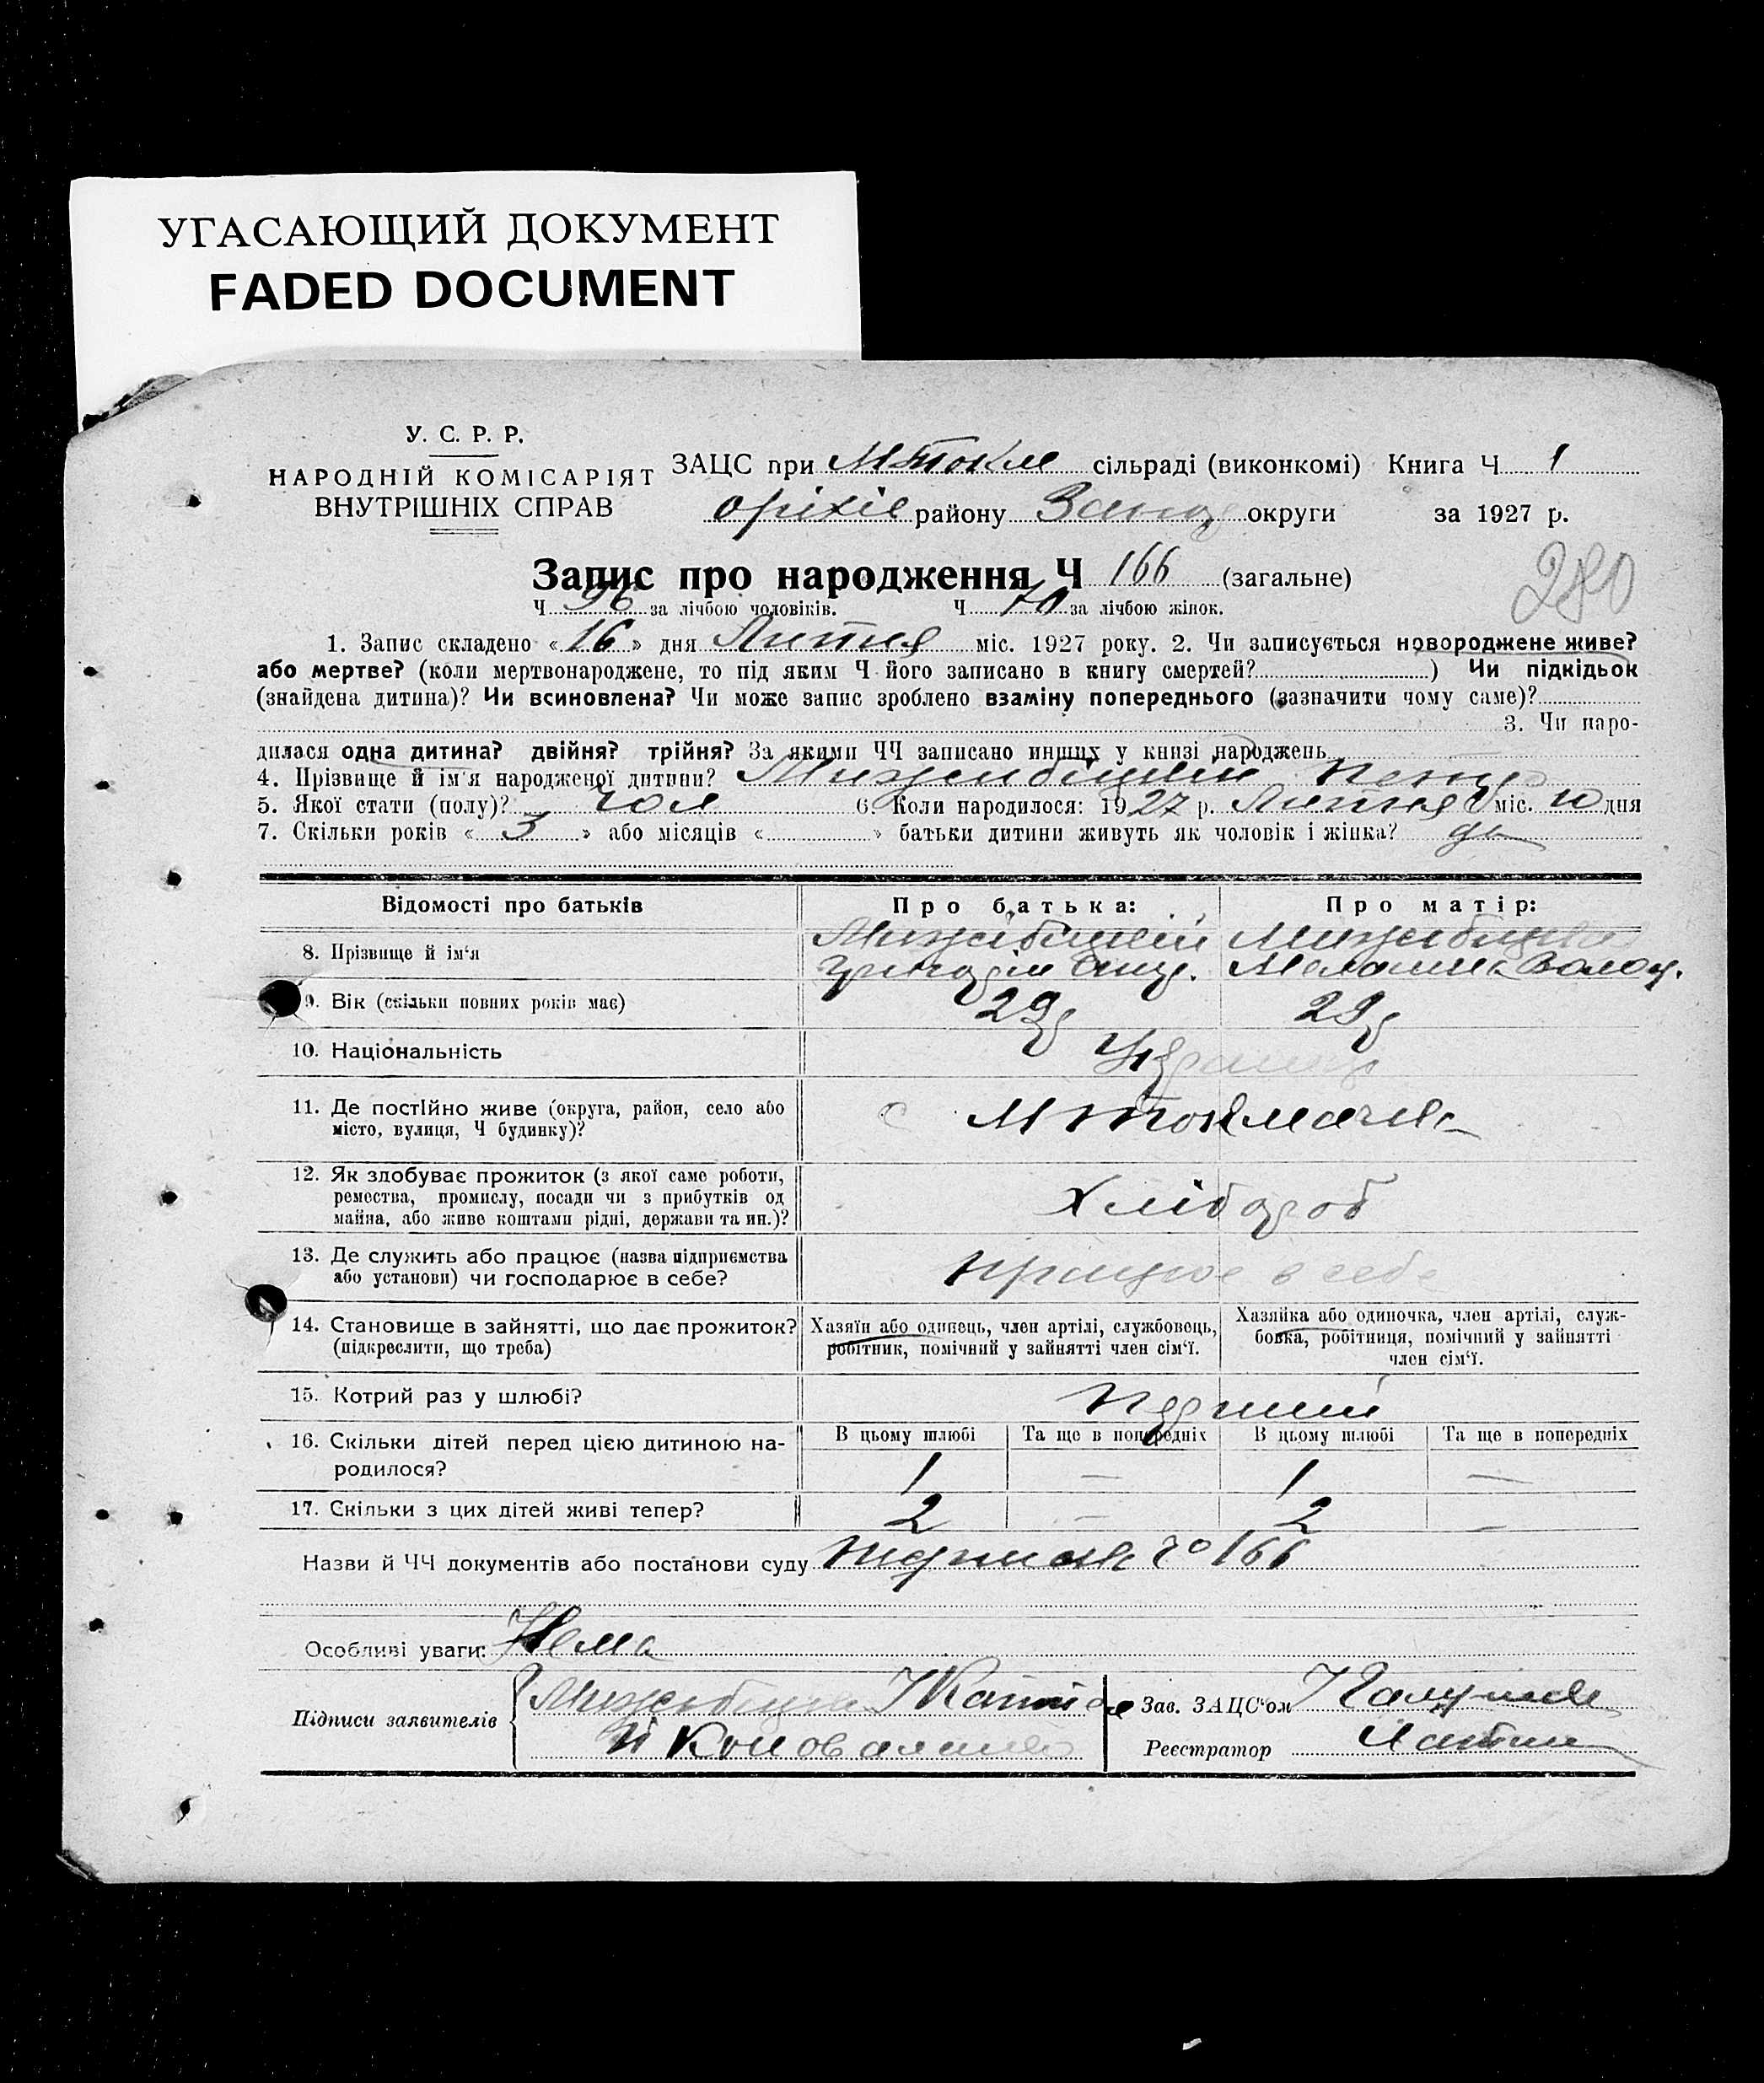 УГАСАЮЩИЙ ДОКУМЕНТ
FADED DOCUMENT
У. С. Р. Р.
НАРОДНІЙ КОМІСАРІЯТ
ВНУТРІШНІХ СПРАВ
ЗАЦС при М Токм сільраді (виконкомі) Книга Ч 1
Оріхів району округи за 1927 р.
Запис про народження Ч 166 (загальне)
280
Ч 96 за лічбою чоловіків. Ч 70 за лічбою жінок.
1. Запис складено « 16 » дня Липня міс. 1927 року. 2. Чи записується новороджене живе?
або мертве? (коли мертвонароджене, то під яким Ч його записано в книгу смертей? ) Чи підкідьок
(знайдена дитина)? Чи всиновлена? Чи може запис зроблено взаміну попереднього (зазначити чому саме)?
3. Чи наро-
дилася одна дитина? двійня? трійня? За якими ЧЧ записано инших у книзі народжень
4. Прізвище й ім'я народженої дитини?
5. Якої стати (полу)? чол 6. Коли народилося: 1927 р. Липня міс. 10 дня
7. Скільки років « 3 » або місяців « » батьки дитини живуть як чоловік і жінка? да
Відомості про батьків Про батька: Про матір:
8. Прізвище й ім'я
9. Вік (скільки повних років має) 29 29
10. Національність
11. Де постійно живе (округа, район, село або
місто, вулиця, Ч будинку)? с М Токмачка
12. Як здобуває прожиток (з якої саме роботи,
ремества, промислу, посади чи з прибутків од
майна, або живе коштами рідні, держави та ин.)? Хлібороб
13. Де служить або працює (назва підприємства
або установи) чи господарює в себе? працює в себе
14. Становище в зайнятті, що дає прожиток?
(підкреслити, що треба)
Хазяїн або одинець, член артілі, службовець,
робітник, помічний у зайнятті член сім'ї.
Хазяйка або одиночка, член артілі, служ-
бовка, робітниця, помічний у зайнятті
член сім'ї.
15. Котрий раз у шлюбі? Перший
16. Скільки дітей перед цією дитиною на-
родилося?
В цьому шлюбі Та ще в попередніх В цьому шлюбі Та ще в попередніх
1 — 1 —
17. Скільки з цих дітей живі тепер? 2 — 2 —
Назви й ЧЧ документів або постанови суду 166
Особливі уваги: Нема
Підписи заявителів
Зав. ЗАЦС'ом
Реєстратор